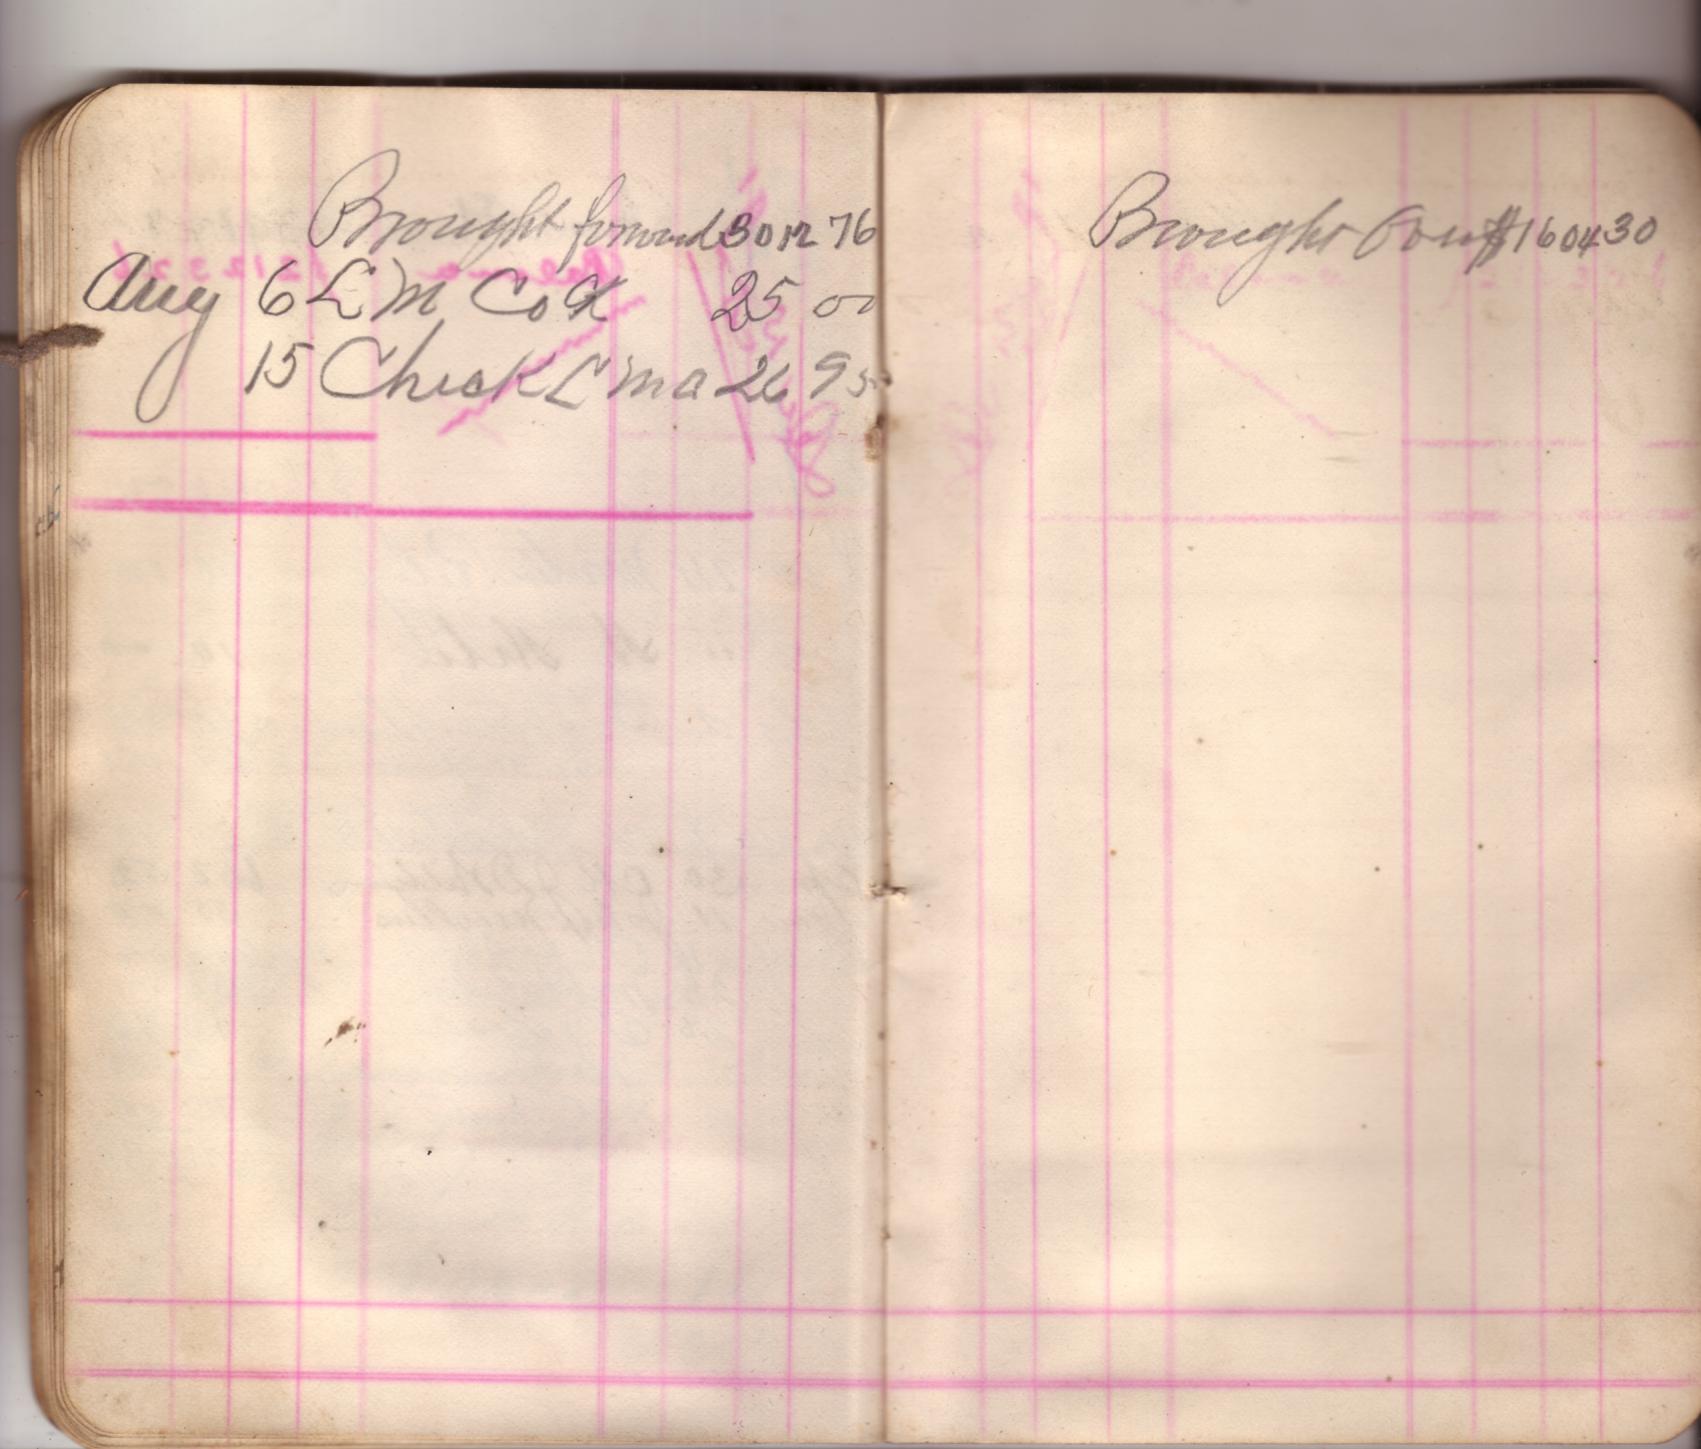 Brought forward 3012 76
Aug 6 L M Cox 25 00
15 Check L M a 26 95
Brought $1604 30